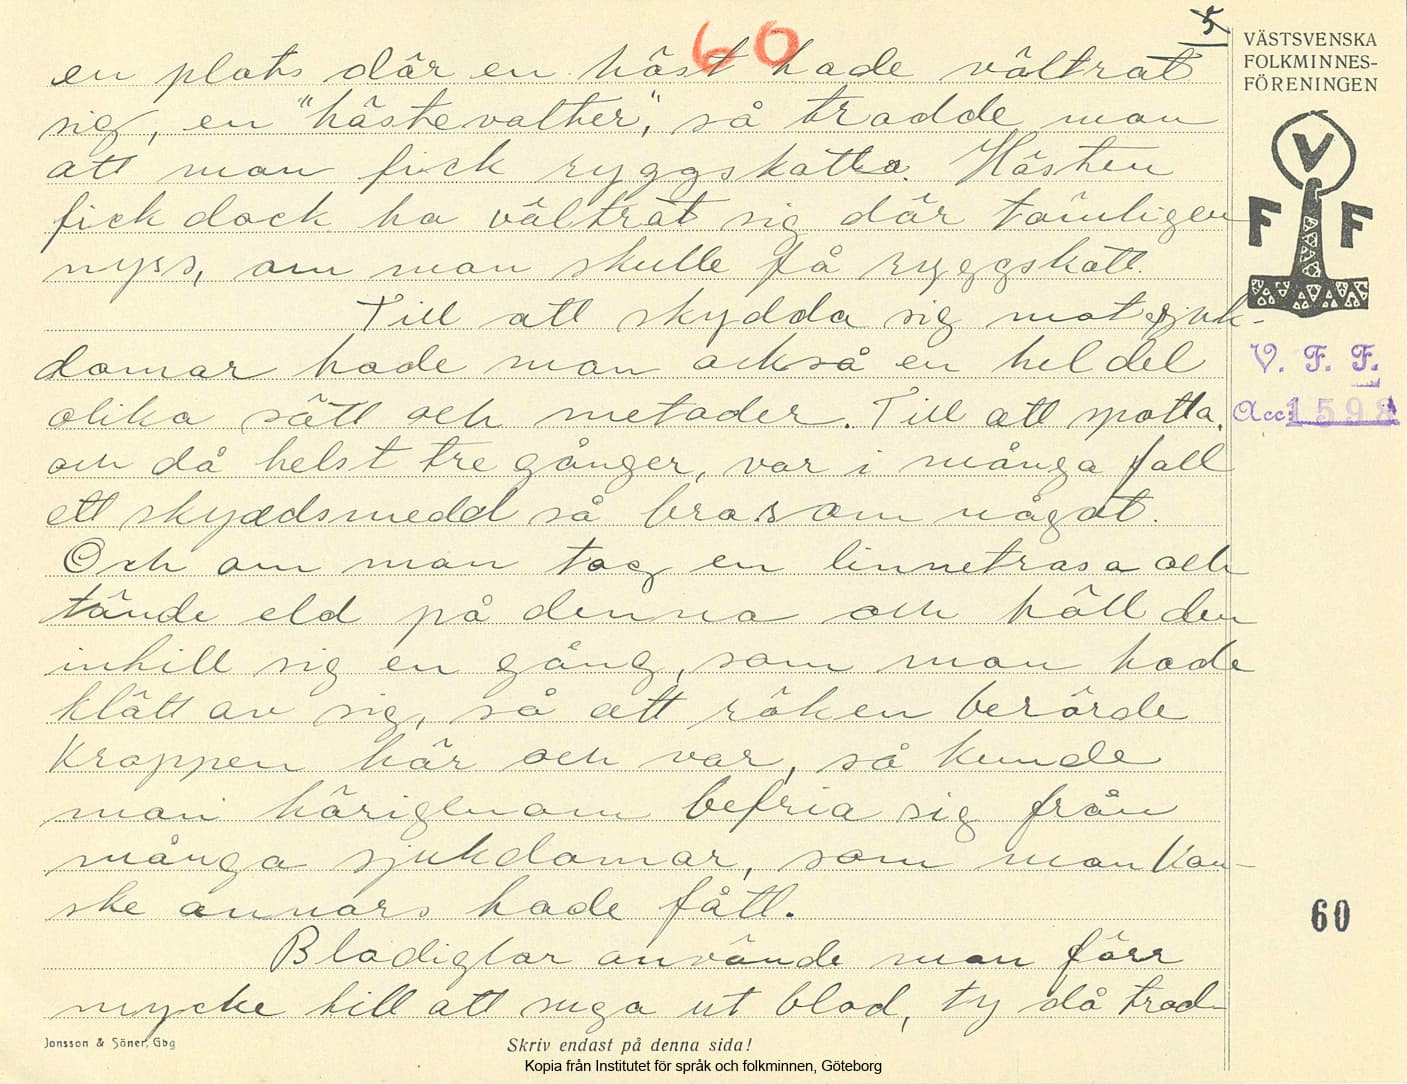 60
5
en plats där en häst hade vältrat
sig, en "hästevalther", så trodde man
att man fick ryggskatta. Hästen
fick dock ha vältrat sig där tämligen
nyss, om man skulle få ryggskott.
Till att skydda sig mot sjuk-
domar hade man också en hel del
olika sätt och metoder. Till att spotta,
och då helst tre gånger, var i många fall
ett skyddsmedel så bra som något.
Och om man tog en linnetrasa och
tände eld på denna och höll den
inhill sig en gång, som man hade
klätt av sig, så att röken berörde
kroppen här och var, så kunde
man härigenom befria sig från
många sjukdomar, som man kan-
ske annars hade fått.
Blodiglar använde man förr
mycke till att suga ut blod, ty då trod-
VÄSTSVENSKA
FOLKMINNES-
FÖRENINGEN
V
F F
V. F. F.
Acc: 1598
60
Jonsson & Söner, Gbg
Skriv endast på denna sida!
Kopia från Institutet för språk och folkminnen, Göteborg